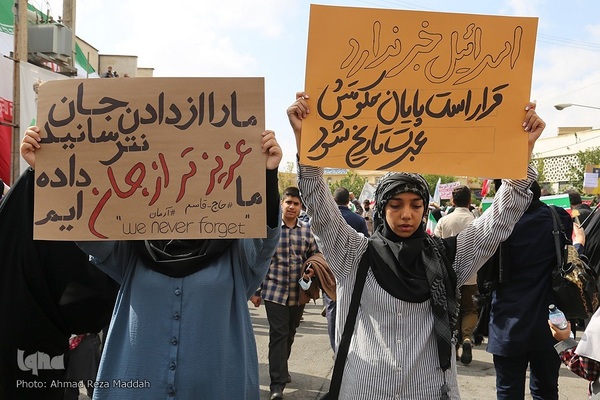 ما را از دادن جان
نترسانید
عزیزتر از جان
ما
داده
ایم
#حاج_قاسم #آرمان
"we never forget"
اسرائیل خبر ندارد
قرار است پایان حکومتش
عبرت تاریخ شود
iqna
Photo: Ahmad Reza Maddah